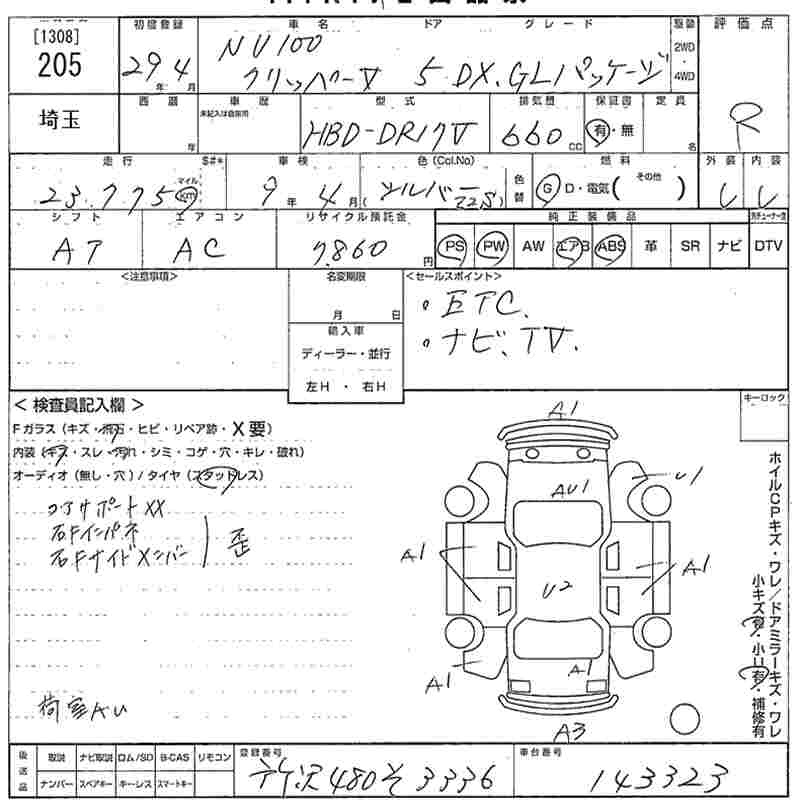 [1308]
205
初度登録
29 年 4 月
車名 ドア グレード
NV100
クリッパーV 5 DX.GLパッケージ
駆動
2WD
・
4WD
評価点
R
埼玉
西暦 年
車歴
未記入は自家用
型式
HBD-DR17V
排気量
660 cc
保証書
有・無
定員
名
走行 $#*
23.775 マイル km
車検
9 年 4 月
色 (Col.No)
(シルバー Z2S)
色替
燃料
G D・電気( その他 )
外装 内装
シフト
AT
エアコン
AC
リサイクル預託金
7.860 円
純正装備品
PS PW AW エアB ABS 革 SR ナビ DTV
<注意事項>
名変期限
月 日
輸入車
ディーラー・並行
左H ・ 右H
<セールスポイント>
・ETC.
・ナビ、TV.
< 検査員記入欄 >
Fガラス (キズ・飛石・ヒビ・リペア跡・X要)
内装 (キズ・スレ・汚れ・シミ・コゲ・穴・キレ・破れ)
オーディオ (無し・穴) / タイヤ (スタッドレス)
コアサポートXX
右Fインパネ
右Fサイドメンバー
歪
荷室AU
キーロック
A1
AU1
U1
A1
A1
U2
A1
A1
A3
ホイルCPキズ・ワレ/ドアミラーキズ・ワレ
小キズ有・小U有・補修有
後送品
取説 ナビ取説 ロム/SD B-CAS リモコン
ナンバー スペアキー キーレス スマートキー
登録番号
所沢480そ3336
車台番号
143323